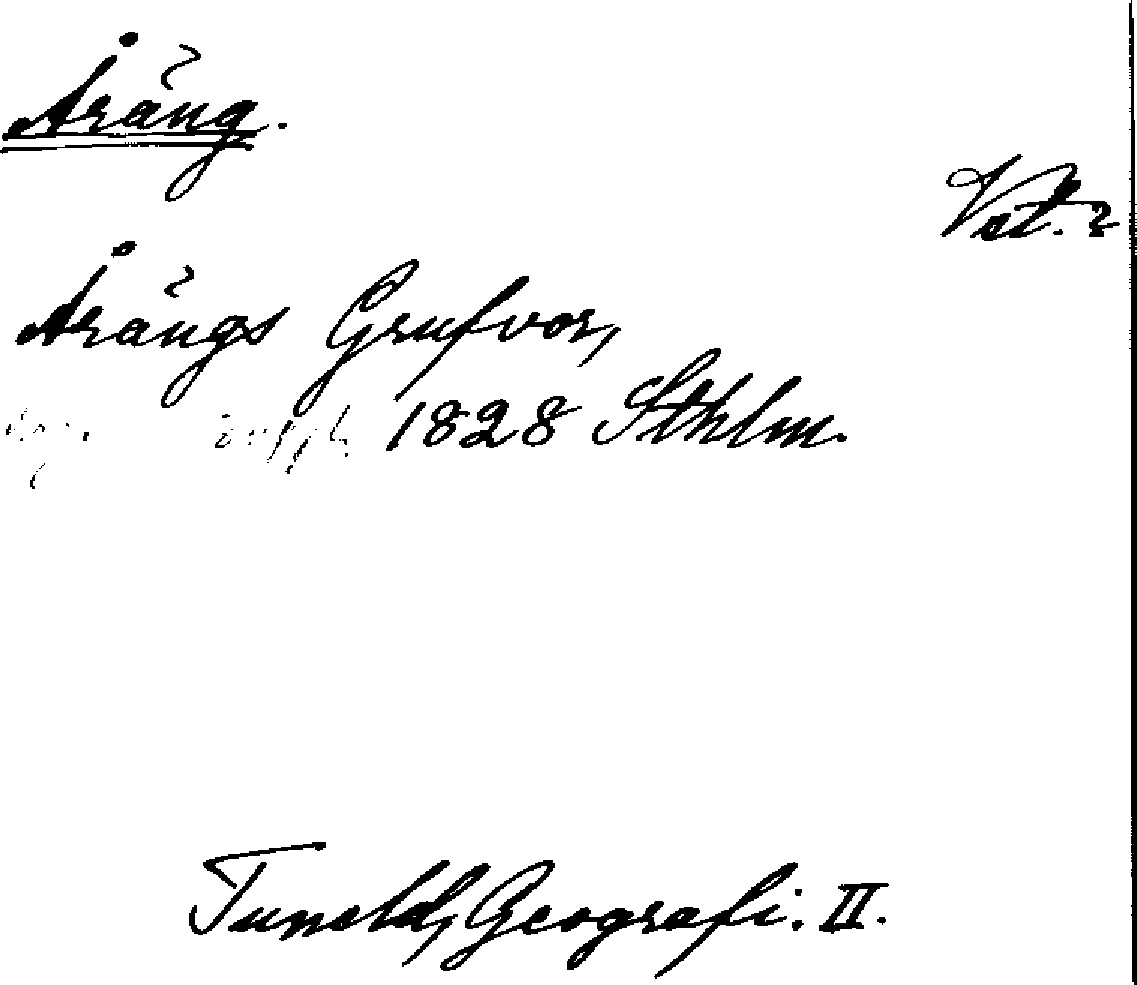 Åräng.
Vst. ?
Årängs Grufvor,
1828 Sthlm.
Tuneld, Geografi. II.